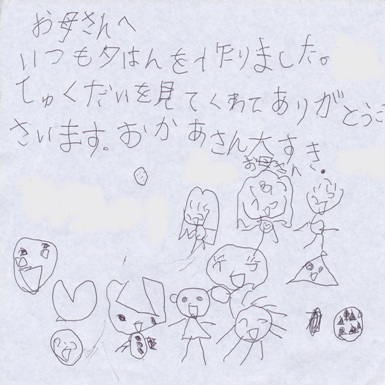 お母さんへ
いつも夕はんを作りました。
しゅくだいを見てくれてありがとうご
ざいます。おかあさん大すき。
お母さんへ